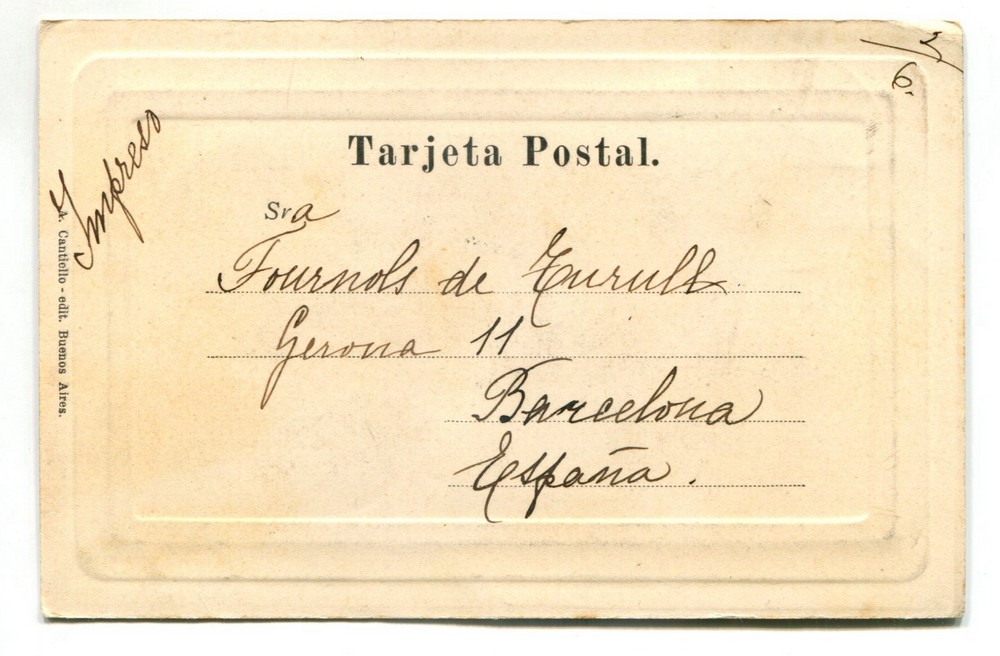 Tarjeta Postal.
Sra
Fournols de Turull
Gerona 11
Barcelona
España.
Impreso
A. Cantiello - edit. Buenos Aires.